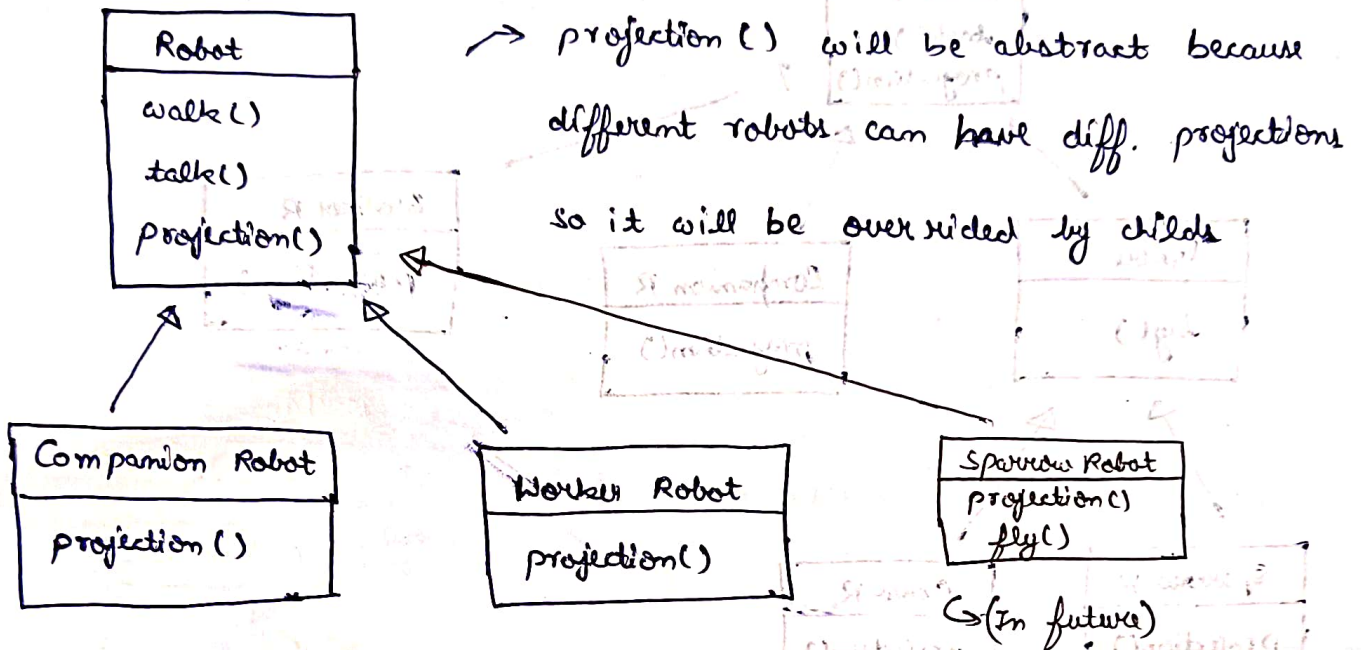 Robot
walk()
talk()
projection()
→ projection() will be abstract because
different robots can have diff. projections
so it will be overrided by childs
Companion Robot
projection()
Worker Robot
projection()
Sparrow Robot
projection()
fly()
↳(In future)